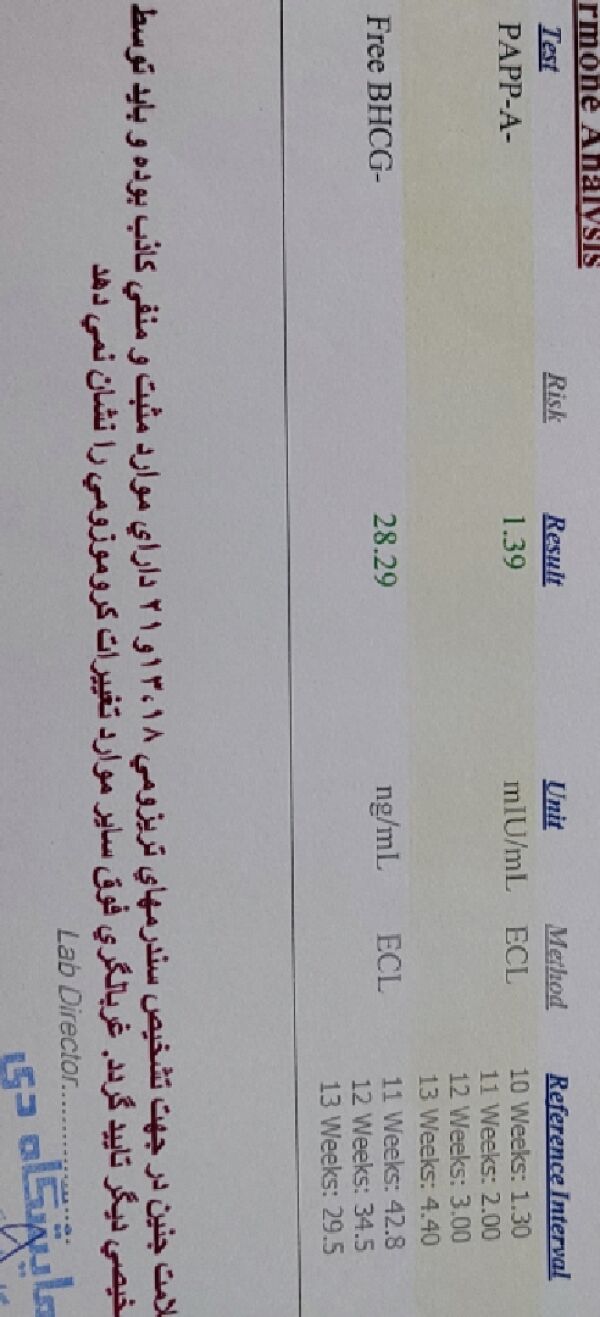 rmone Analysis
Test Risk Result Unit Method Reference Interval
PAPP-A- 1.39 mIU/mL ECL 10 Weeks: 1.30
11 Weeks: 2.00
12 Weeks: 3.00
13 Weeks: 4.40
Free BHCG- 28.29 ng/mL ECL 11 Weeks: 42.8
12 Weeks: 34.5
13 Weeks: 29.5
لامت جنین در جهت تشخیص سندرمهاي تریزومي ۱۳،۱۸ و ۲۱ داراي موارد مثبت و منفي کاذب بوده و باید توسط
خیصي دیگر تایید گردد. غربالگري فوق سایر موارد تغییرات کروموزومي را نشان نمي دهد
Lab Director..............
مایشگاه دی